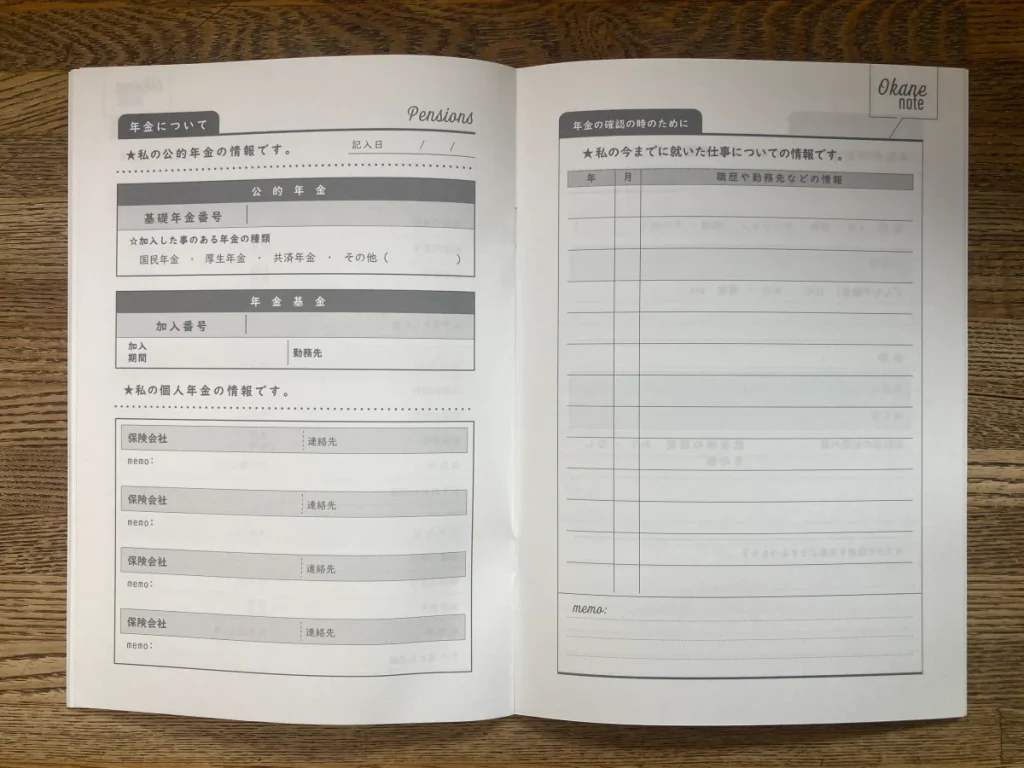 年金について
Pensions
★私の公的年金の情報です。
記入日 / /
公的年金
基礎年金番号
☆加入した事のある年金の種類
国民年金 ・ 厚生年金 ・ 共済年金 ・ その他（ ）
年金基金
加入番号
加入
期間
勤務先
★私の個人年金の情報です。
保険会社 連絡先
memo:
保険会社 連絡先
memo:
保険会社 連絡先
memo:
保険会社 連絡先
memo:
Okane
note
年金の確認の時のために
★私の今までに就いた仕事についての情報です。
年 月 職歴や勤務先などの情報
memo: